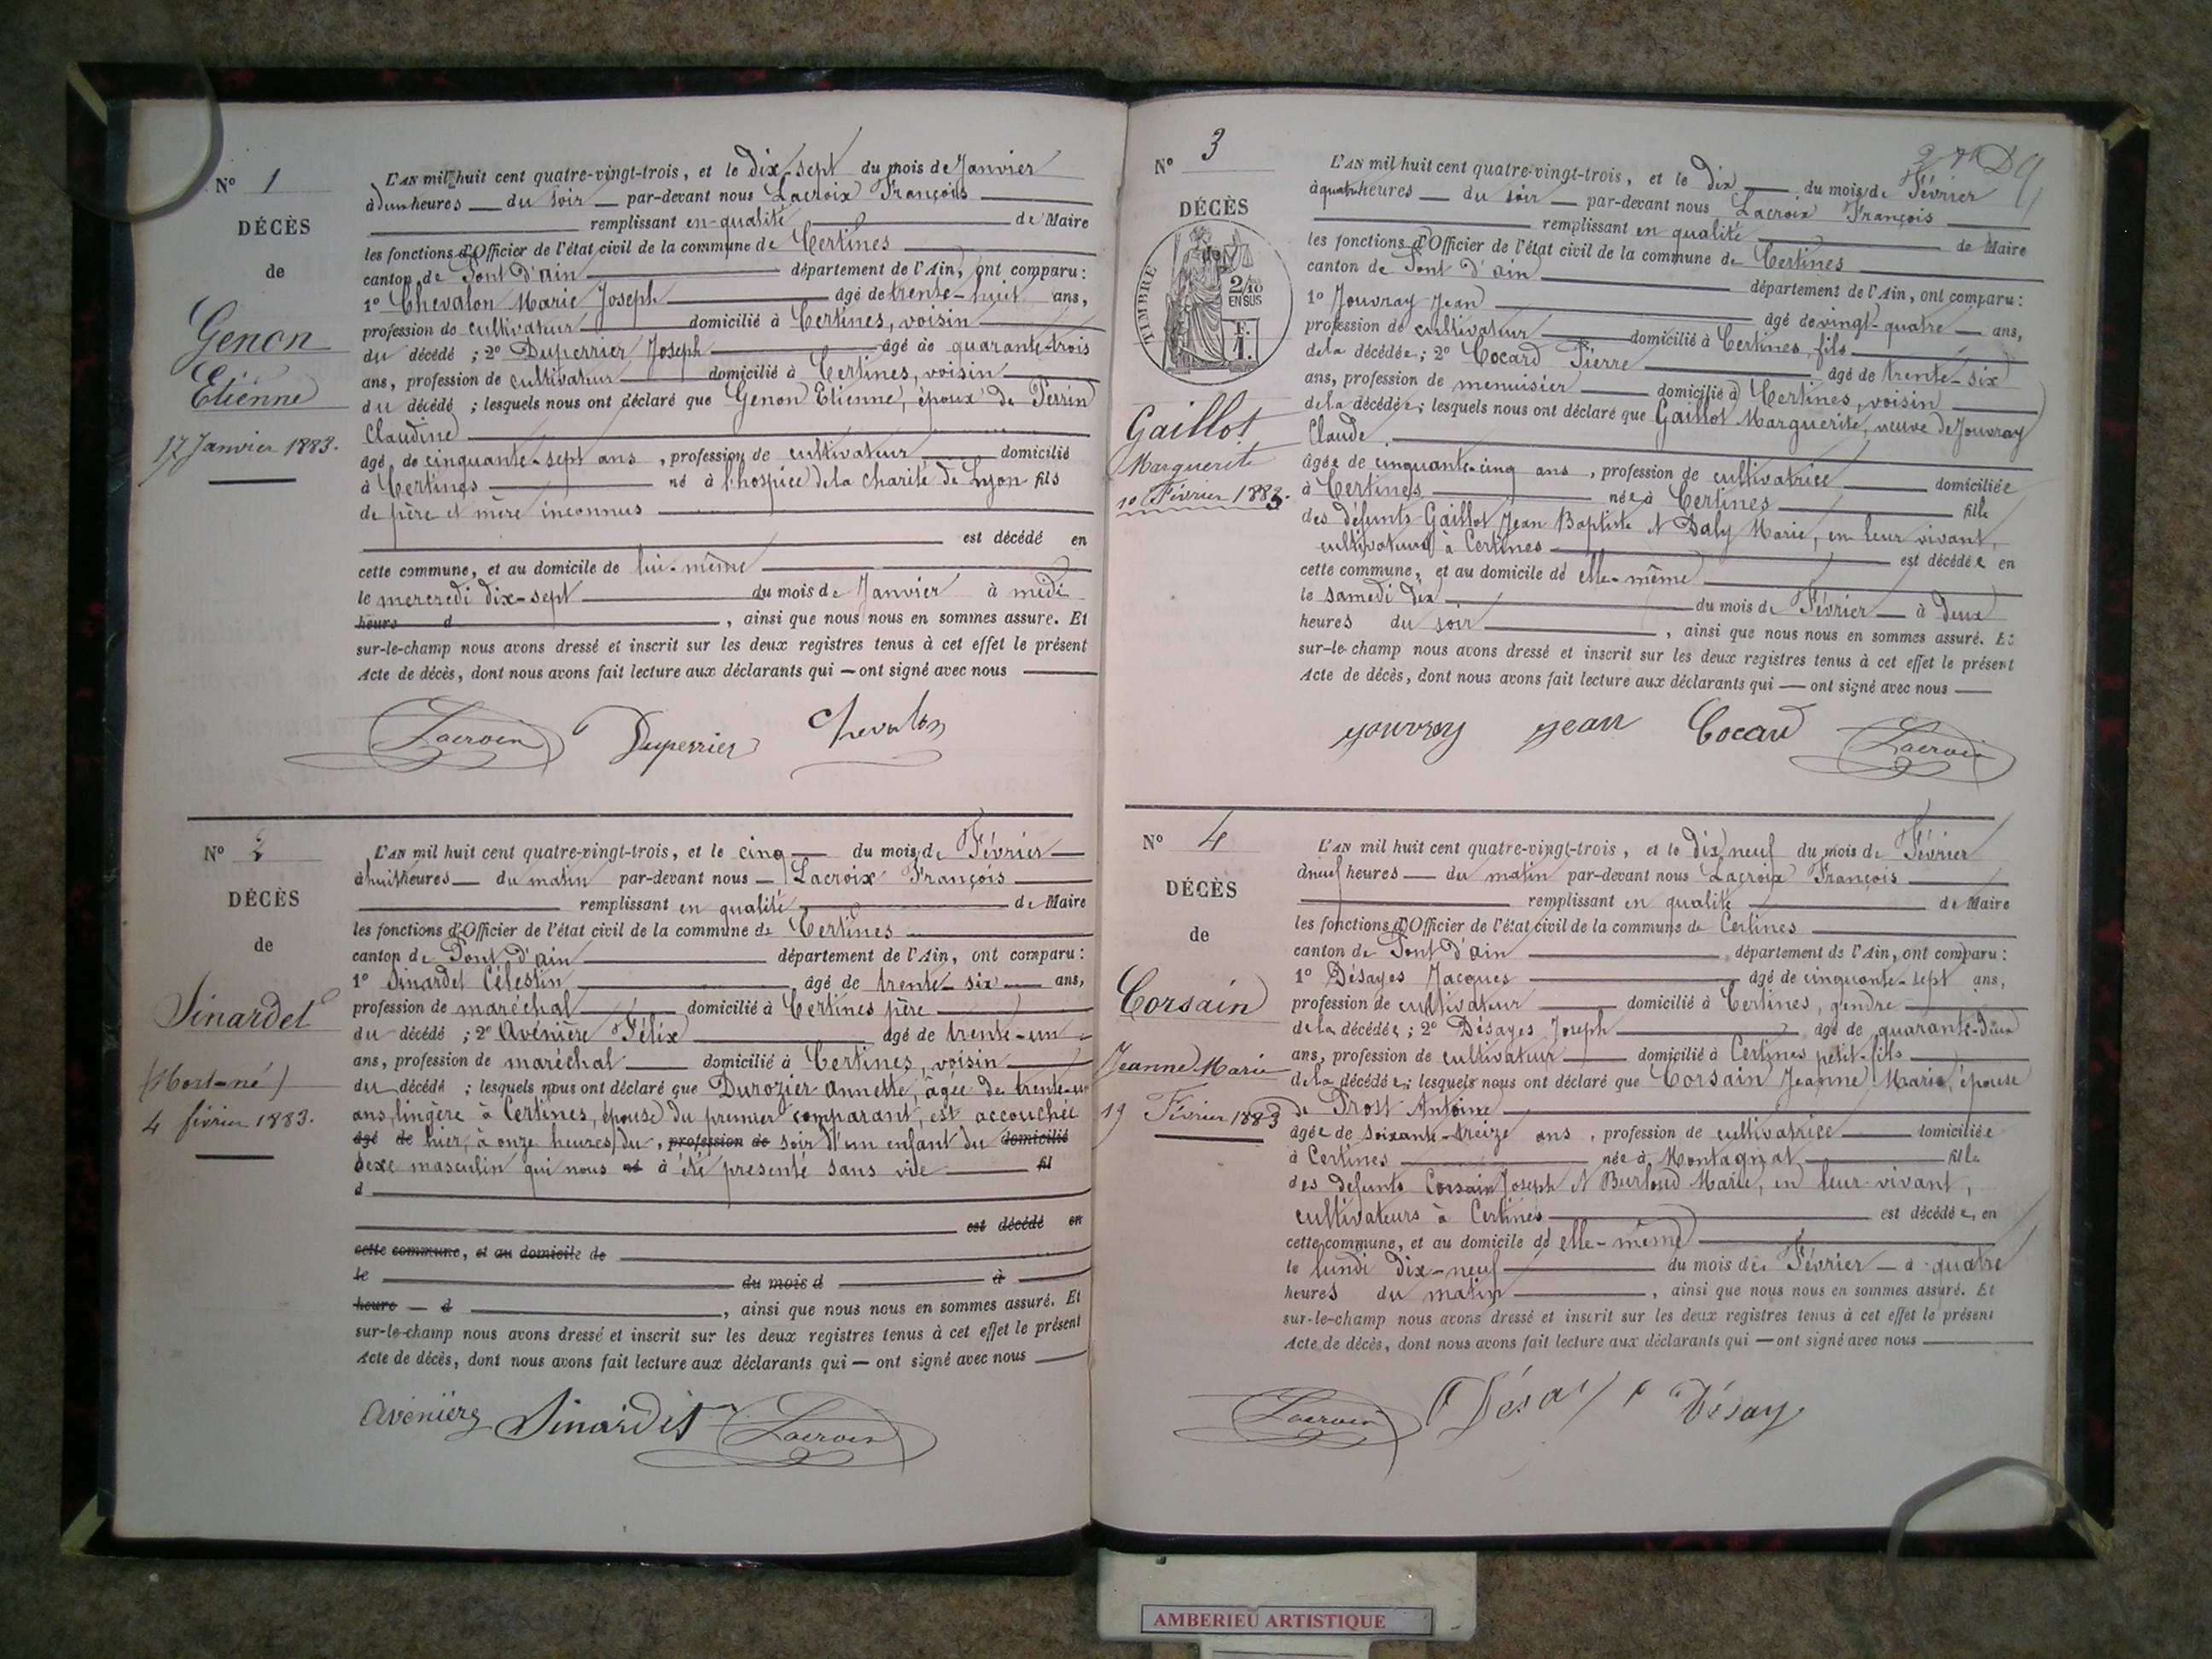 N° 1
DÉCÈS
de
Genon
Etienne
17 Janvier 1883.
L'AN mil huit cent quatre-vingt-trois, et le dix-sept du mois de Janvier
à deux heures du soir par-devant nous Lacroix François
remplissant en qualité de Maire
les fonctions d'Officier de l'état civil de la commune de Certines
canton de Pont d'ain département de l'Ain, ont comparu :
1° Chevalon Marie Joseph âgé de trente-huit ans,
profession de cultivateur domicilié à Certines, voisin
du décédé ; 2° Duperrier Joseph âgé de quarante-trois
ans, profession de cultivateur domicilié à Certines, voisin
du décédé ; lesquels nous ont déclaré que Genon Etienne, époux de Perrin
Claudine
âgé de cinquante-sept ans , profession de cultivateur domicilié
à Certines né à l'hospice de la charité de Lyon fils
de père et mère inconnus
est décédé en
cette commune, et au domicile de lui-même
le mercredi dix-sept du mois de Janvier à midi
heure d , ainsi que nous nous en sommes assuré. Et
sur-le-champ nous avons dressé et inscrit sur les deux registres tenus à cet effet le présent
Acte de décès, dont nous avons fait lecture aux déclarants qui — ont signé avec nous
Lacroix Duperrier Chevalon
N° 2
DÉCÈS
de
Sinardet
(Mort-né)
4 février 1883.
L'AN mil huit cent quatre-vingt-trois, et le cinq du mois de Février
à huit heures du matin par-devant nous Lacroix François
remplissant en qualité de Maire
les fonctions d'Officier de l'état civil de la commune de Certines
canton de Pont d'ain département de l'Ain, ont comparu :
1° Sinardet Célestin âgé de trente-six ans,
profession de maréchal domicilié à Certines père
du décédé ; 2° Avénière Félix âgé de trente-un
ans, profession de maréchal domicilié à Certines, voisin
du décédé ; lesquels nous ont déclaré que Durozier Annette, âgée de trente-un
ans, lingère à Certines, épouse du premier comparant, est accouchée
âgé de hier, à onze heures du , profession de soir d'un enfant du domicilié
sexe masculin qui nous né à été présenté sans vie fil
d
est décédé en
cette commune, et au domicile de
le du mois d à
heure d , ainsi que nous nous en sommes assuré. Et
sur-le-champ nous avons dressé et inscrit sur les deux registres tenus à cet effet le présent
Acte de décès, dont nous avons fait lecture aux déclarants qui — ont signé avec nous
Avénière Sinardet Lacroix
N° 3
DÉCÈS
de
TIMBRE
2/10
EN SUS
F.
1.
Gaillot
Marguerite
10 Février 1883.
L'AN mil huit cent quatre-vingt-trois, et le dix du mois de Février
à quatre heures du soir par-devant nous Lacroix François
remplissant en qualité de Maire
les fonctions d'Officier de l'état civil de la commune de Certines
canton de Pont d'ain département de l'Ain, ont comparu :
1° Jouvray Jean âgé de vingt-quatre ans,
profession de cultivateur domicilié à Certines, fils
de la décédée ; 2° Cocard Pierre âgé de trente-six
ans, profession de menuisier domicilié à Certines, voisin
de la décédée ; lesquels nous ont déclaré que Gaillot Marguerite, veuve de Jouvray
Claude
âgée de cinquante-cinq ans , profession de cultivatrice domiciliée
à Certines née à Certines fille
des défunts Gaillot Jean Baptiste et Daly Marie, en leur vivant,
cultivateurs à Certines est décédée en
cette commune, et au domicile de elle-même
le samedi dix du mois de Février à deux
heures du soir , ainsi que nous nous en sommes assuré. Et
sur-le-champ nous avons dressé et inscrit sur les deux registres tenus à cet effet le présent
Acte de décès, dont nous avons fait lecture aux déclarants qui — ont signé avec nous
Jouvray Jean Cocard Lacroix
N° 4
DÉCÈS
de
Corsain
Jeanne Marie
19 Février 1883
L'AN mil huit cent quatre-vingt-trois, et le dix neuf du mois de Février
à neuf heures du matin par-devant nous Lacroix François
remplissant en qualité de Maire
les fonctions d'Officier de l'état civil de la commune de Certines
canton de Pont d'ain département de l'Ain, ont comparu :
1° Désayes Jacques âgé de cinquante-sept ans,
profession de cultivateur domicilié à Certines, gendre
de la décédée ; 2° Désayes Joseph âgé de quarante-deux
ans, profession de cultivateur domicilié à Certines petit-fils
de la décédée ; lesquels nous ont déclaré que Corsain Jeanne Marie, épouse
de Prost Antoine
âgée de soixante-treize ans , profession de cultivatrice domiciliée
à Certines née à Montagnat fille
des défunts Corsain Joseph et Burloud Marie, en leur vivant,
cultivateurs à Certines est décédée, en
cette commune, et au domicile de elle-même
le lundi dix-neuf du mois de Février à quatre
heures du matin , ainsi que nous nous en sommes assuré. Et
sur-le-champ nous avons dressé et inscrit sur les deux registres tenus à cet effet le présent
Acte de décès, dont nous avons fait lecture aux déclarants qui — ont signé avec nous
Lacroix Désay Désay
AMBERIEU ARTISTIQUE